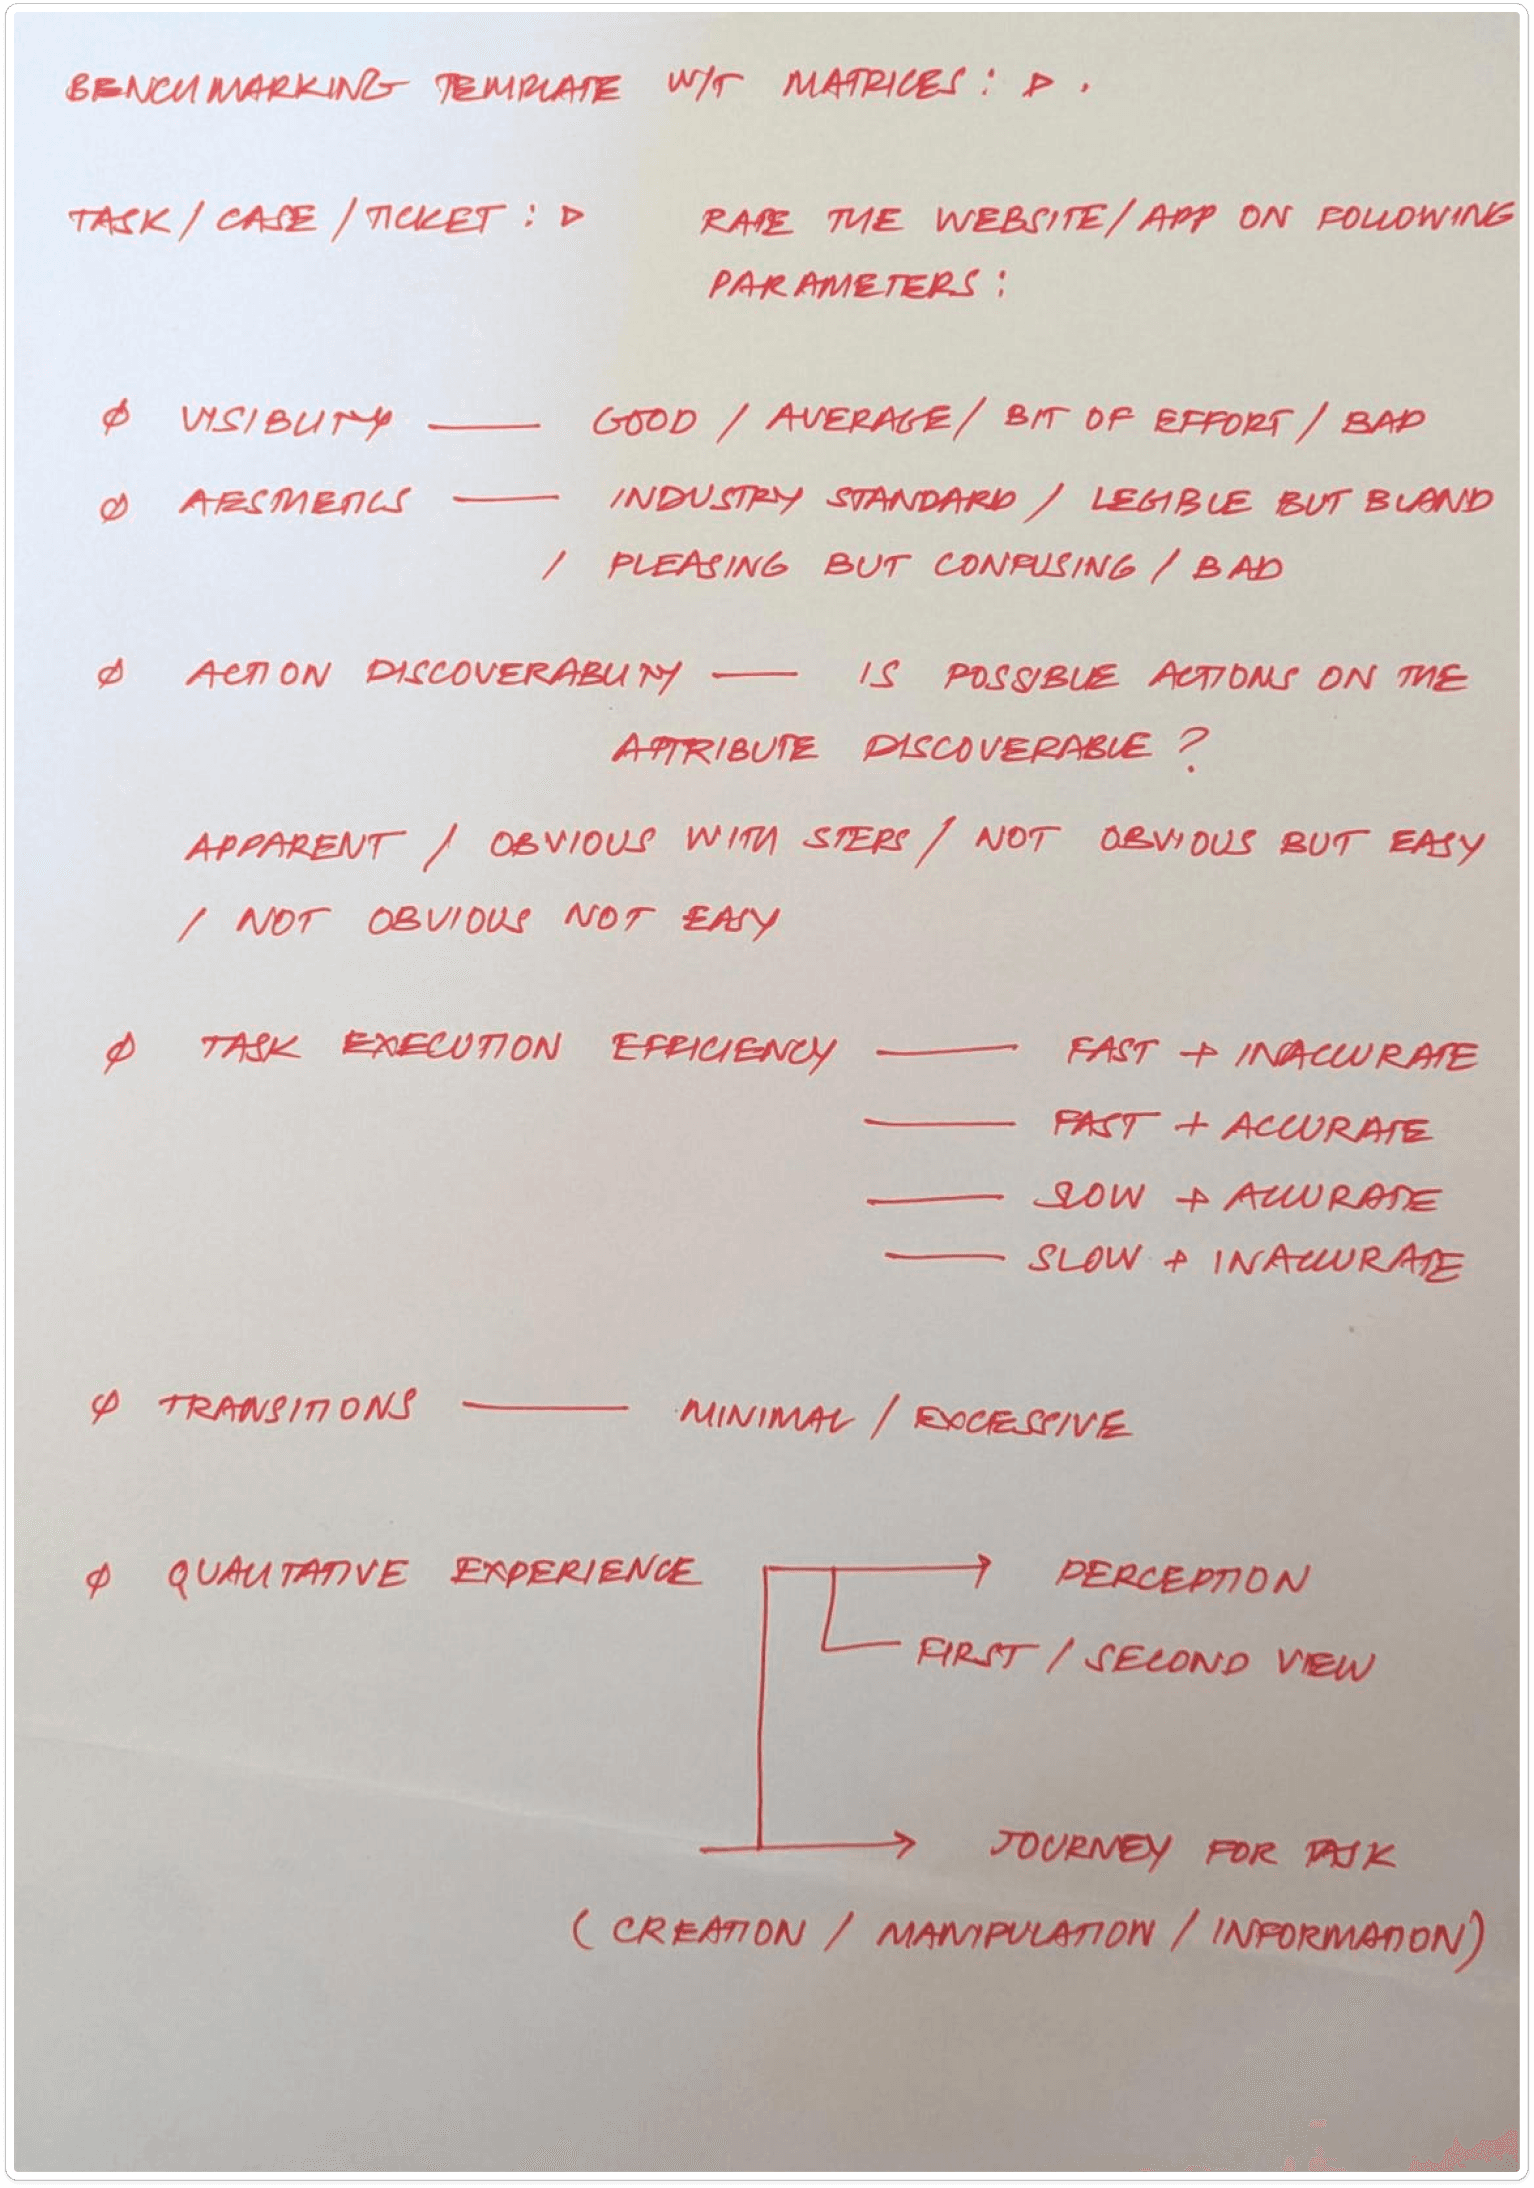 BENCHMARKING TEMPLATE W/T MATRICES : ▷ .
TASK / CASE / TICKET : ▷ RATE THE WEBSITE / APP ON FOLLOWING
PARAMETERS :
ϕ VISIBILITY — GOOD / AVERAGE / BIT OF EFFORT / BAD
ϕ AESTHETICS — INDUSTRY STANDARD / LEGIBLE BUT BLAND
/ PLEASING BUT CONFUSING / BAD
ϕ ACTION DISCOVERABILITY — IS POSSIBLE ACTIONS ON THE
ATTRIBUTE DISCOVERABLE ?
APPARENT / OBVIOUS WITH STEPS / NOT OBVIOUS BUT EASY
/ NOT OBVIOUS NOT EASY
ϕ TASK EXECUTION EFFICIENCY — FAST + INACCURATE
— FAST + ACCURATE
— SLOW + ACCURATE
— SLOW + INACCURATE
ϕ TRANSITIONS — MINIMAL / EXCESSIVE
ϕ QUALITATIVE EXPERIENCE → PERCEPTION
FIRST / SECOND VIEW
→ JOURNEY FOR TASK
( CREATION / MANIPULATION / INFORMATION )